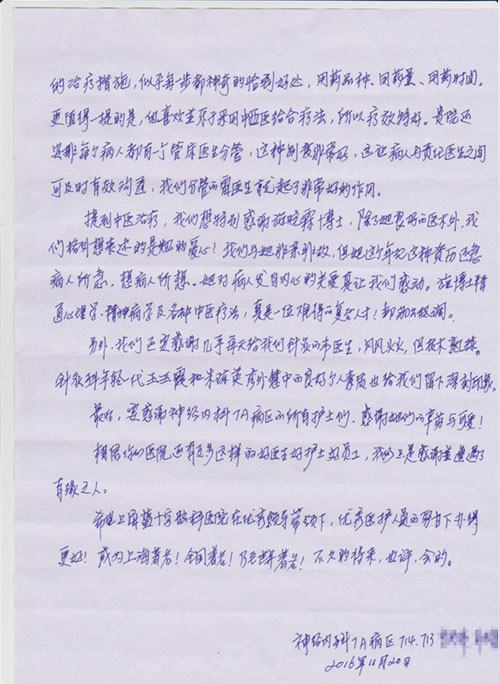 的治疗措施，似乎每步都神奇的恰到好处，用药品种、用药量、用药时间。
更值得一提的是，他喜欢並乐于采用中西医结合疗法，所以疗效特好。贵院还
安排每个病人都有一个管床医生分管，这种制度非常好，这让病人与责任医生之间
可及时有效沟通，我们分管的 医生就起了非常好的作用。
提到中医治疗，我们想特别感谢施晓霖博士，除了她良好的医术外，我
们格外想表述的是她的爱心！我们与她非亲非故，但她这年纪这种资历还急
病人所急、想病人所想。她对病人发自内心的关爱真让我们感动。施博士精
通心理学、精神病学及各种中医疗法，真是一位难得的复合人才！却
另外，我们还要感谢几乎每天给我们针灸的韦医生，风风火火，但技术熟练。
针灸科年轻一代王玉霞和朱 英 外慧中的良好个人素质也给我们留下深刻印象。
最后，要感谢神经内科7A病区的所有护士们、感谢她们的辛苦与可爱！
相信你们医院还有更多这样的好医生好护士好员工，我们只是感谢並遭遇了
有缘之人。
希望上海蓝十字脑科医院在优秀领导带领下，优秀医护人员的努力下办得
更好！成为上海著名！全国著名！乃至世界著名！不久的将来，也许，会的。
神经内科7A病区714.713
2016年11月20日